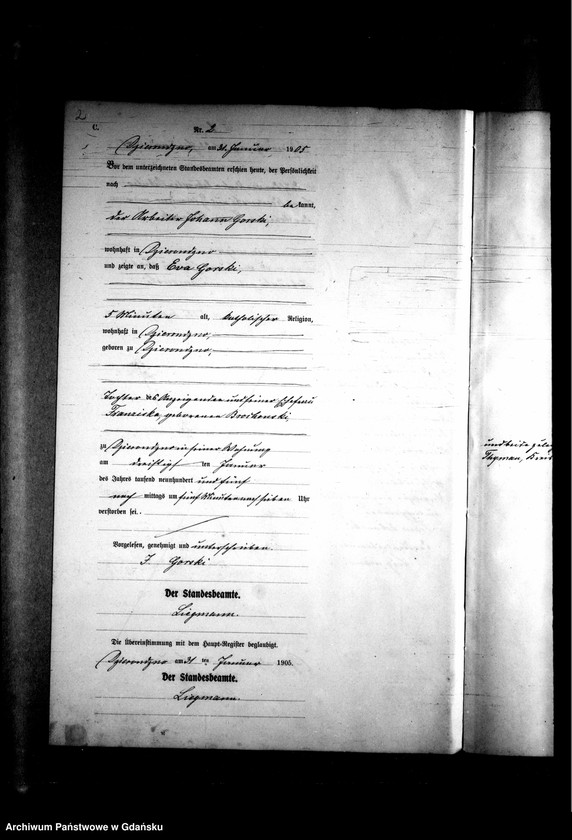 2
C.
Nr. 2
am 31. Januar 1905
Vor dem unterzeichneten Standesbeamten erschien heute, der Persönlichkeit
nach
be kannt,
der Arbeiter Johann Gorski,
wohnhaft in
und zeigte an, daß Eva Gorski,
5 Minuten alt, katholischer Religion,
wohnhaft in
geboren zu
Tochter des Anzeigenden und seiner Ehefrau
Franziska geborenen
zu in seiner Wohnung
am dreißigsten Januar
des Jahres tausend neunhundert und fünf
nach mittags um fünf Minuten nach sieben Uhr
verstorben sei.
Vorgelesen, genehmigt und unterschrieben.
J. Gorski
Der Standesbeamte.
Liegmann.
Die Übereinstimmung mit dem Haupt-Register beglaubigt.
am 31 ten Januar 1905.
Der Standesbeamte.
Liegmann.
und beide
Archiwum Państwowe w Gdańsku